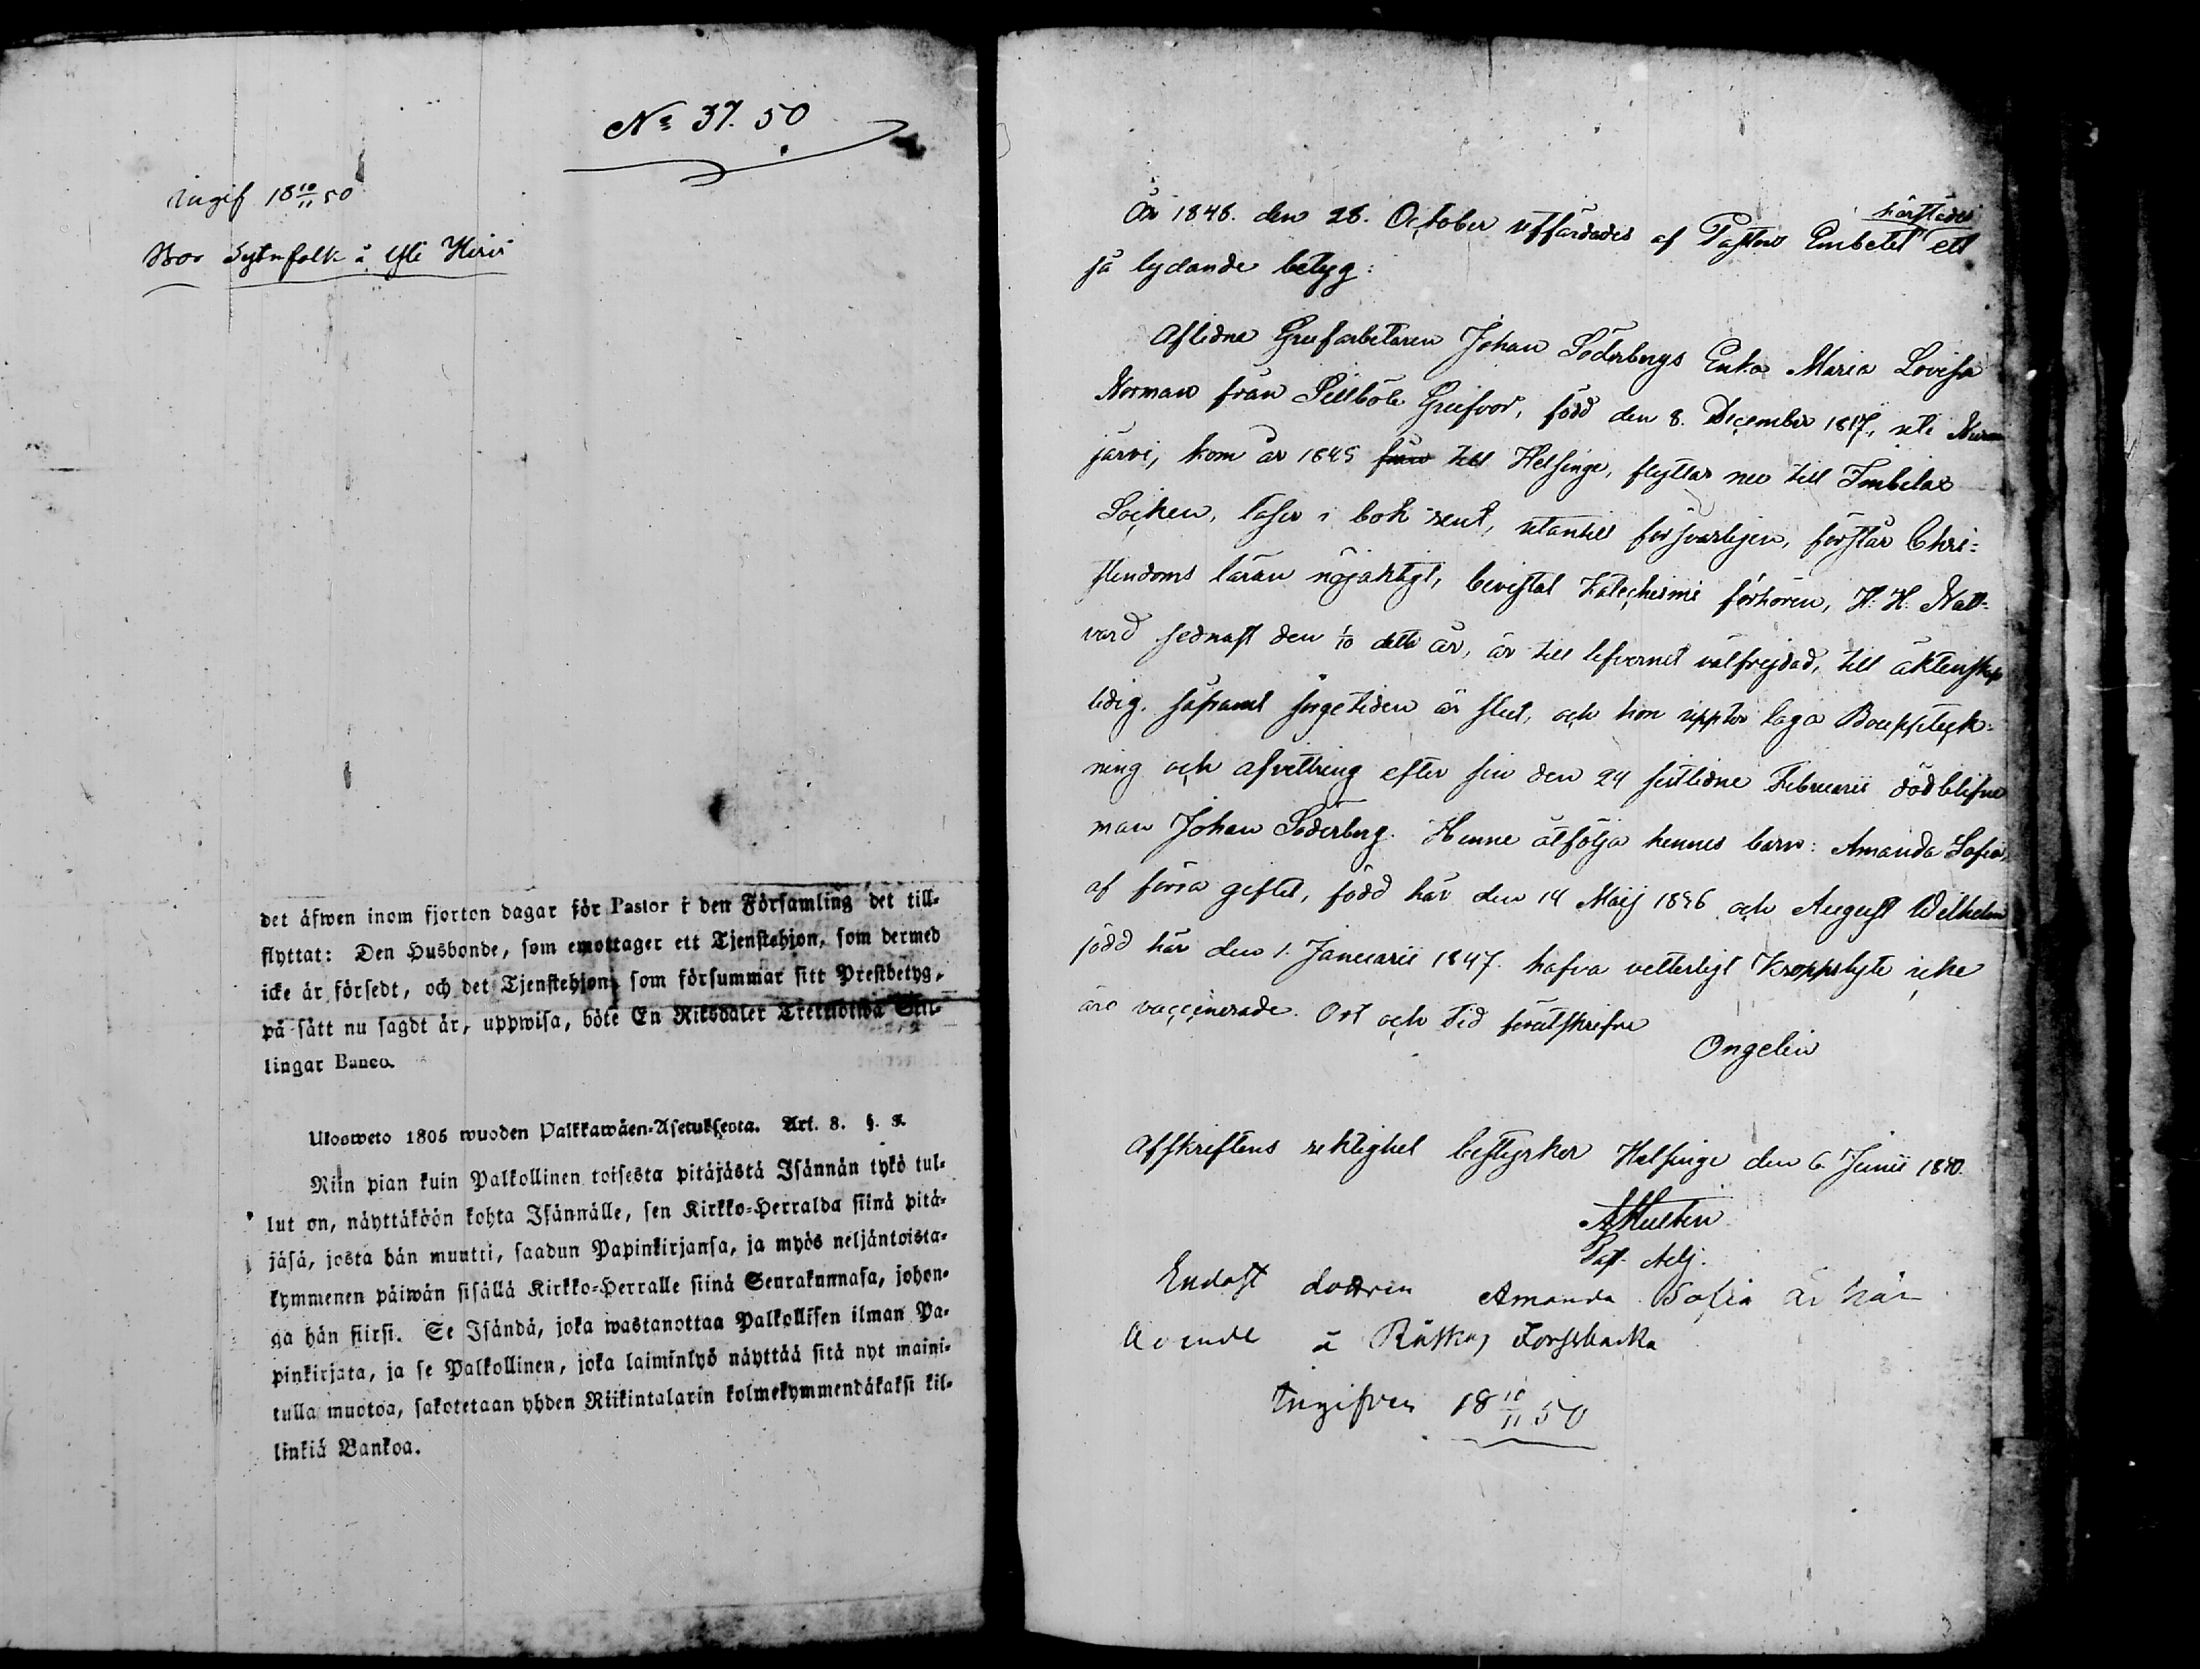 No 37. 50
Ingif 18 10/11 50
Bor Sytnfolk å Yli Hiris
det äfwen inom fjorton dagar för Pastor i den Församling det till-
flyttat: Den Husbonde, som emottager ett Tjenstehjon, som dermed
icke är försedt, och det Tjenstehjon, som försummar sitt Prestbetyg,
på sätt nu sagdt är, uppwisa, böte En Riksdaler Trettiotwå Skil-
lingar Banco.
Ulosweto 1805 wuoden Palkkawäen-Asetuksesta. Art. 8. §. 2.
Niin pian kuin Palkollinen toisesta pitäjästä Isännän tykö tul-
lut on, näyttäköön kohta Isännälle, sen Kirkko-Herralda siinä pitä-
jäsä, josta hän muutti, saadun Papinkirjansa, ja myös neljäntoista-
kymmenen päiwän sisällä Kirkko-Herralle siinä Seurakunnasa, johon-
ga hän siirsi. Se Isändä, joka wastanottaa Palkollisen ilman Pa-
pinkirjata, ja se Palkollinen, joka laiminlyö näyttää sitä nyt maini-
tulla muotoa, sakotetaan yhden Riikintalarin kolmekymmendäkaksi kil-
linkiä Bankoa.
härstädes
År 1848. den 28. October utfärdades af Pastors Embetet ett
så lydande betyg:
Aflidne Grufarbetaren Johan Söderbergs Enka Maria Lovisa
Norman från Sillböle Grufvor, född den 8. December 1817, uti Nurm
järvi, kom år 1845 från till Helsinge, flyttar nu till
Socken, läser i bok rent, utantill försvarligen, förstår Chri-
stendoms läran nöjaktigt, bevistat Katechismi förhören, H. H. Natt-
vard sednast den 1/10 detta år, är till lefvernet välfrejdad, till äktenskap
ledig, såframt sorgetiden är slut, och hon uppter laga Bouppteck-
ning och afvittring efter sin den 24 sistlidne Februarii död blifne
man Johan Söderberg. Henne åtfölja hennes barn: Amanda Sofia,
af förra giftet, född här den 14 Maij 1846 och August Wilhelm
född här den 1. Januarii 1847. hafva vetterligt Kroppslyte icke
äro vaccinerade. Ort och tid förutskrifne
Ongelin
Afskriftens riktighet bestyrker Helsinge den 6. Junii 1850.
Past. Adj.
Endast dottren Amanda Sofia är här
boende å Räskas Forsbacka
Ingifven 18 10/11 50